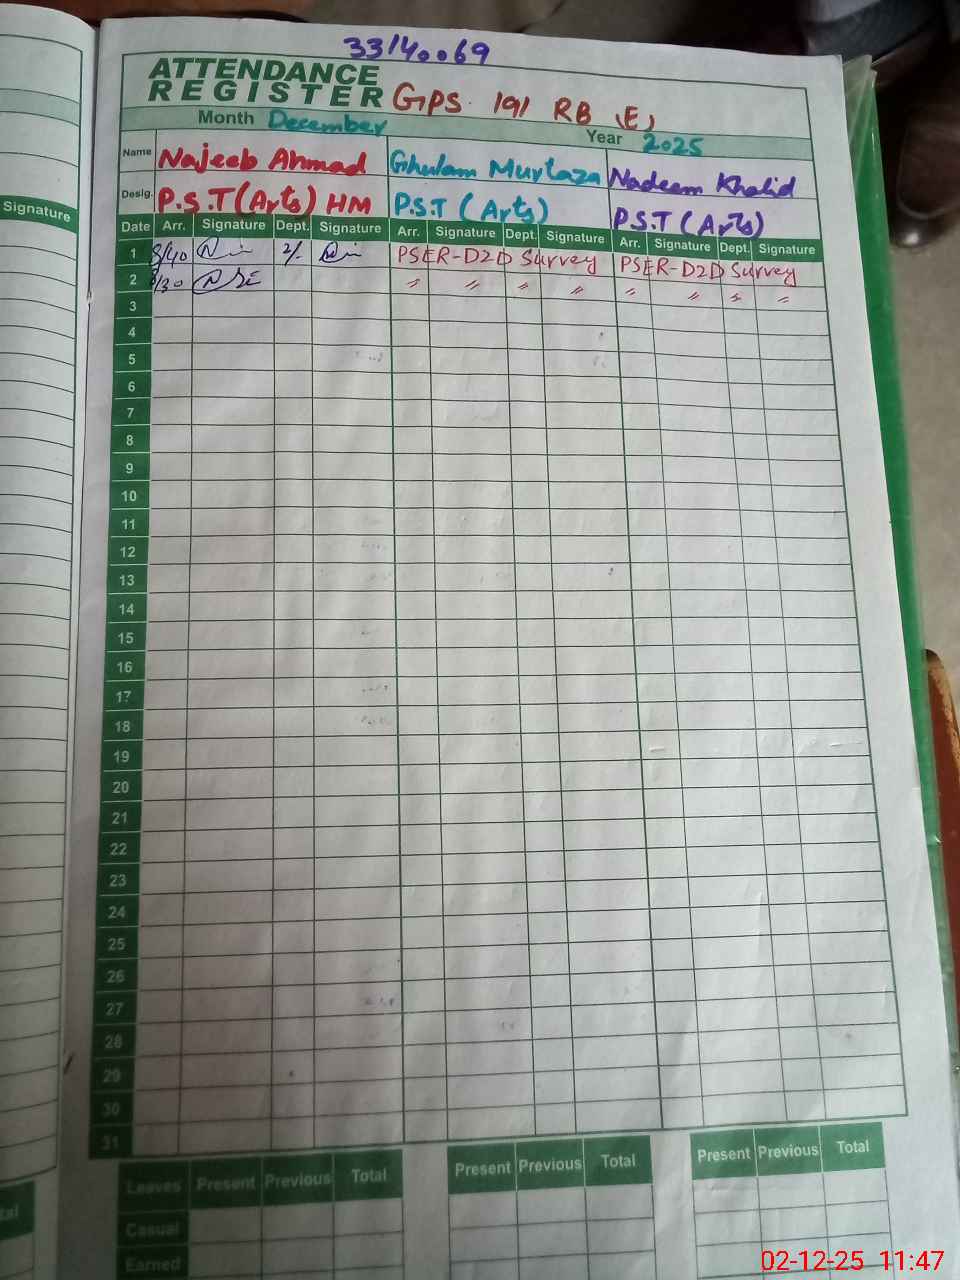 33140069
ATTENDANCE
REGISTER GPS 191 RB (E)
Month December Year 2025
Name Najeeb Ahmad Ghulam Murtaza Nadeem Khalid
Desig. P.S.T (Arts) HM P.S.T (Arts) P.S.T (Arts)
Signature
Date Arr. Signature Dept. Signature Arr. Signature Dept. Signature Arr. Signature Dept. Signature
1 8/40 2/- PSER-D2D Survey PSER-D2D Survey
2 8/30 " " " " " " " "
3
4
5
6
7
8
9
10
11
12
13
14
15
16
17
18
19
20
21
22
23
24
25
26
27
28
29
30
31
Leaves Present Previous Total Present Previous Total Present Previous Total
Casual
Earned
tal
02-12-25 11:47